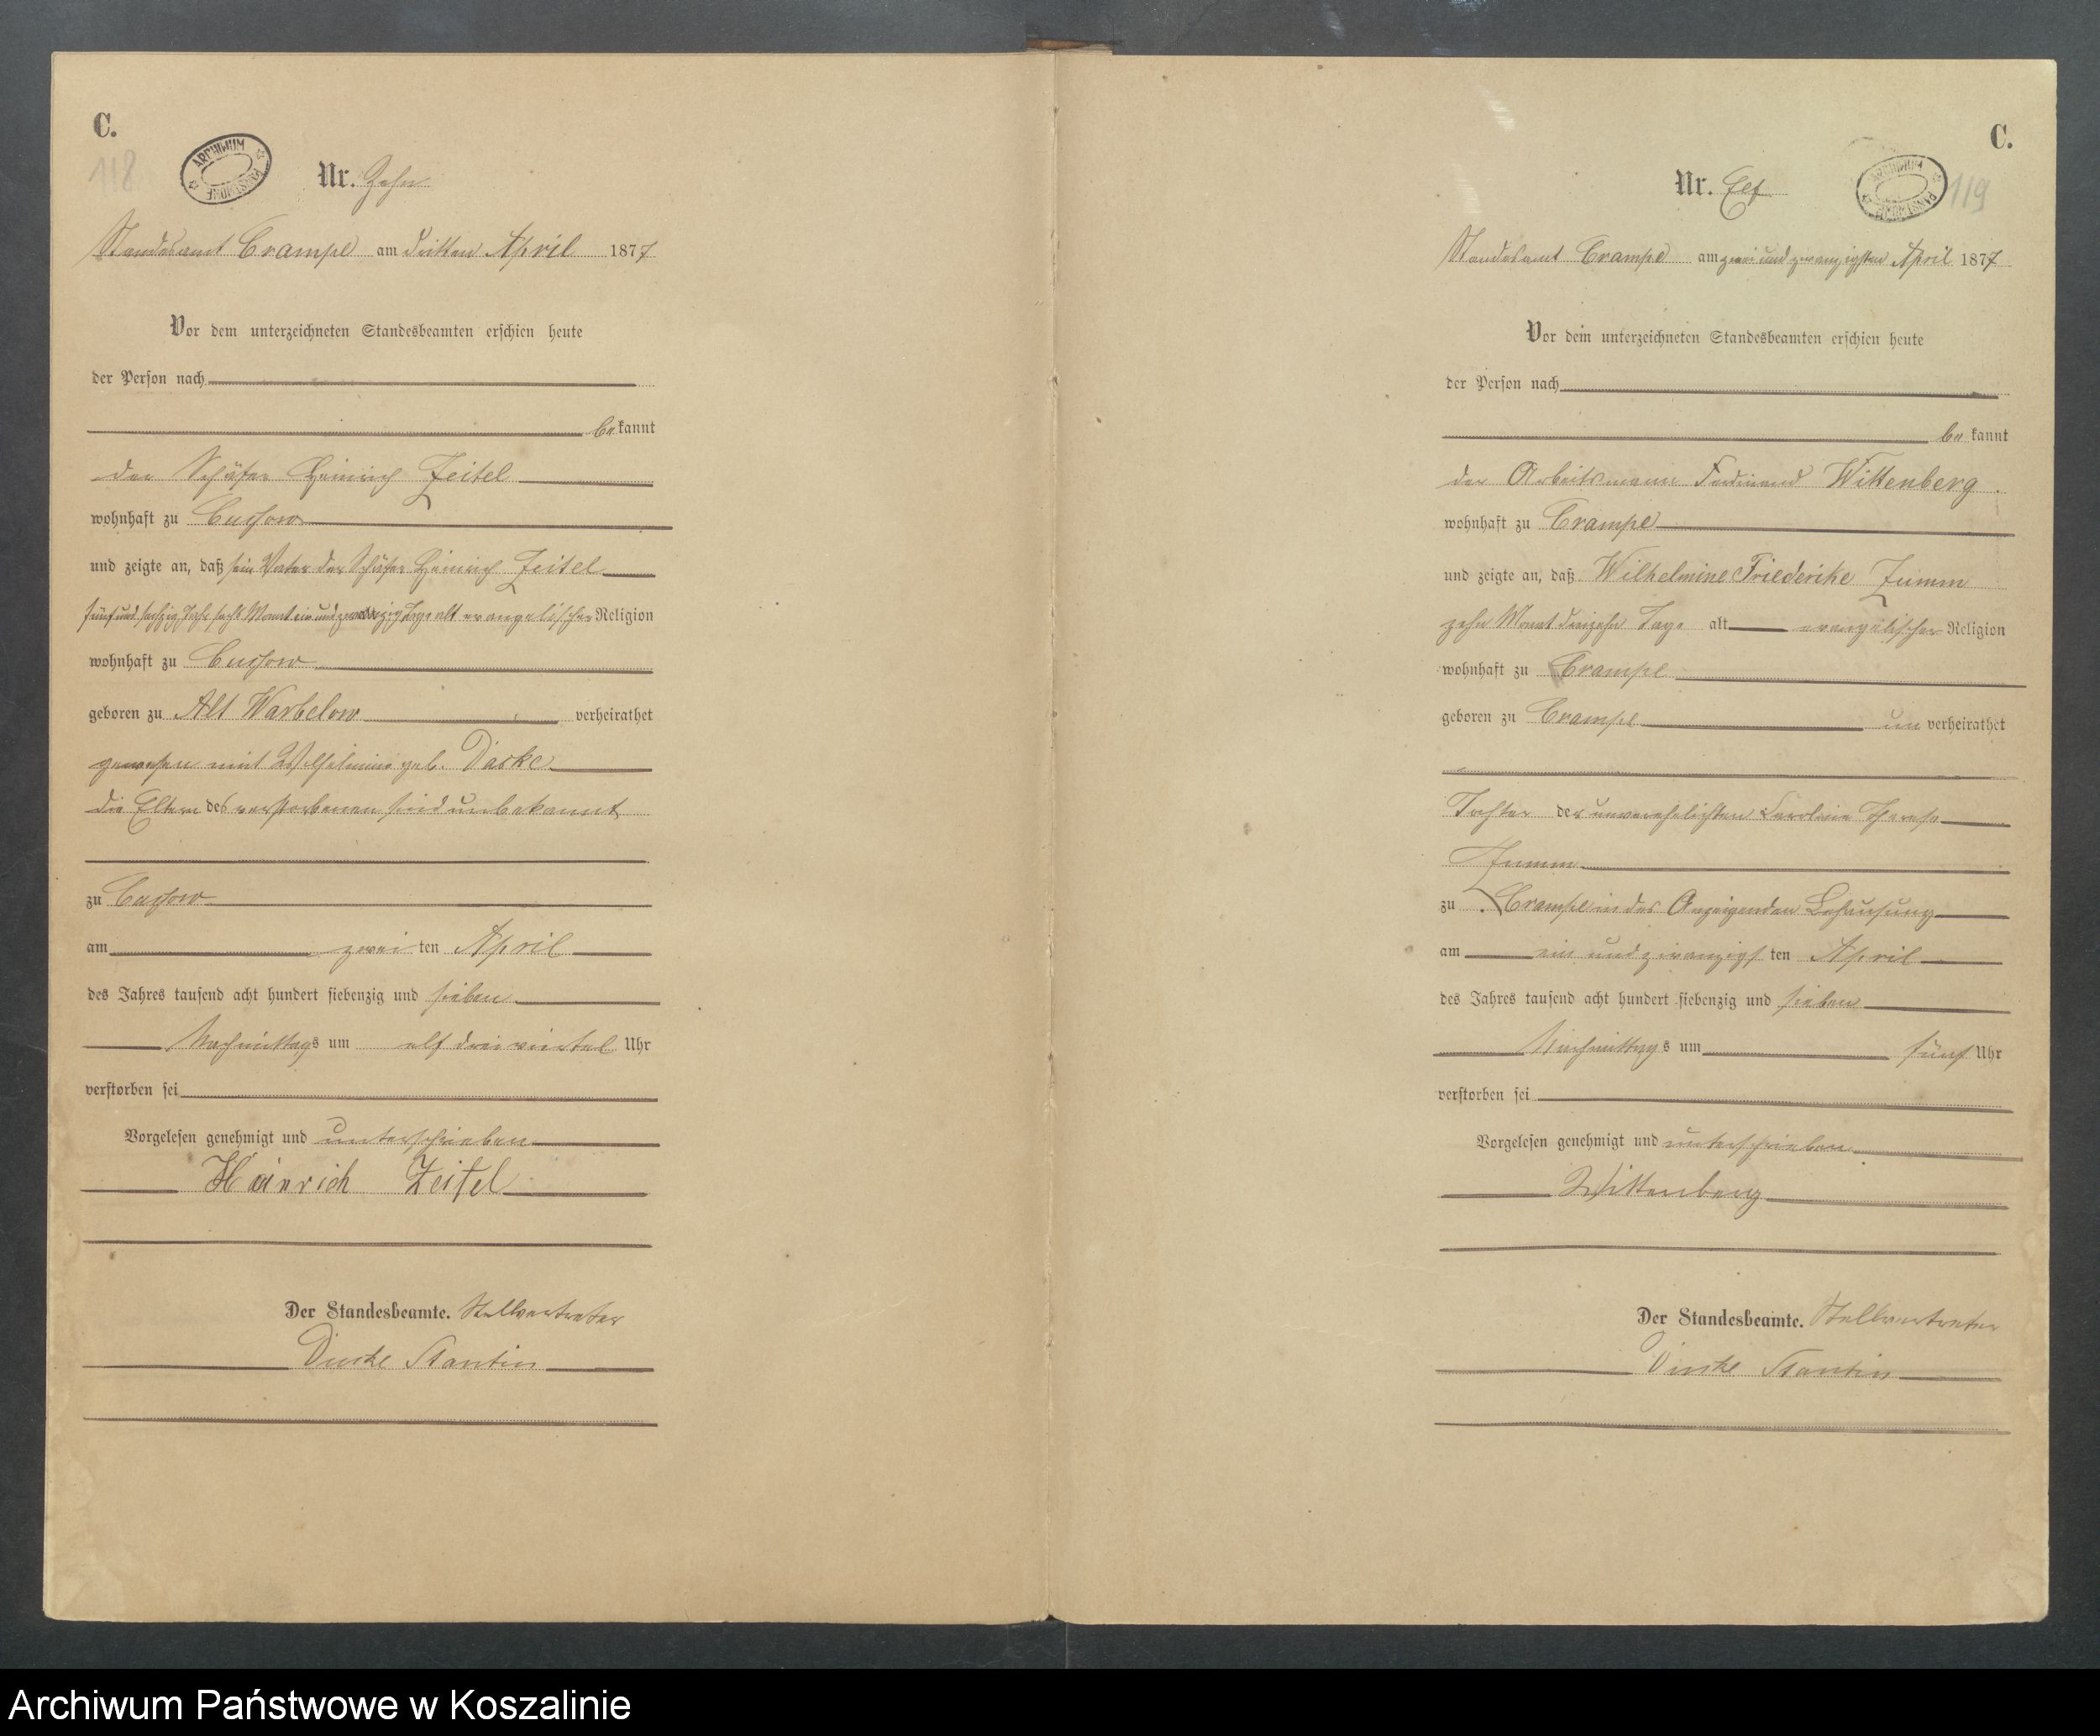 C.
118
ARCHIWUM PAŃSTWOWE
Nr. Zehn
Standesamt Crampe am dritten April 1877
Vor dem unterzeichneten Standesbeamten erschien heute
der Person nach
bekannt
der Schäfer Heinrich Zeitel
wohnhaft zu Cussow
und zeigte an, daß sein Vater der Schäfer Heinrich Zeitel
fünf und sechzig Jahr sechs Monat ein und zwanzig Tage alt evangelischer Religion
wohnhaft zu Cussow
geboren zu Alt Warbelow verheirathet
gewesen mit Wilhelmine geb. Darke
die Eltern des verstorbenen sind unbekannt
zu Cussow
am zweiten April
des Jahres tausend acht hundert siebenzig und sieben
Nachmittags um elf dreiviertel Uhr
verstorben sei
Vorgelesen genehmigt und unterschrieben
Heinrich Zeitel
Der Standesbeamte. Stellvertreter
C.
119
ARCHIWUM PAŃSTWOWE
Nr. Elf
Standesamt Crampe am zwei und zwanzigsten April 1877
Vor dem unterzeichneten Standesbeamten erschien heute
der Person nach
bekannt
der Arbeitsmann Ferdinand Wittenberg
wohnhaft zu Crampe
und zeigte an, daß Wilhelmine Friederike Zumm
zehn Monat dreizehn Tage alt evangelischer Religion
wohnhaft zu Crampe
geboren zu Crampe unverheirathet
Tochter der unverehelichten Karoline Therese
Zumm
zu Crampe in des Anzeigenden Behausung
am ein und zwanzigsten April
des Jahres tausend acht hundert siebenzig und sieben
Nachmittags um fünf Uhr
verstorben sei
Vorgelesen genehmigt und unterschrieben
Wittenberg
Der Standesbeamte. Stellvertreter
Archiwum Państwowe w Koszalinie